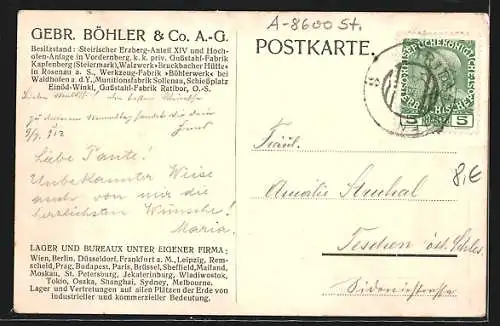 GEBR. BÖHLER & Co. A.-G.
Besitzstand: Steirischer Erzberg-Anteil XIV und Hoch-
ofen-Anlage in Vordernberg, k. k. priv. Gußstahl-Fabrik
Kapfenberg (Steiermark), Walzwerk »Bruckbacher Hütte«
in Rosenau a. S., Werkzeug-Fabrik »Böhlerwerk« bei
Waidhofen a. d. Y., Munitionsfabrik Sollenau, Schießplatz
Einöd-Winkl, Gußstahl-Fabrik Ratibor, O.-S.
die besten Wünsche
zu deinem Namenstag
Ernst
Liebe Tante!
Unbekannter Weise
auch von mir die
herzlichsten Wünsche!
Maria.
LAGER UND BUREAUX UNTER EIGENER FIRMA:
Wien, Berlin, Düsseldorf, Frankfurt a. M., Leipzig, Rem-
scheid, Prag, Budapest, Paris, Brüssel, Sheffield, Mailand,
Moskau, St. Petersburg, Jekaterinburg, Wladiwostok,
Tokio, Osaka, Shanghai, Sydney, Melbourne.
Lager und Vertretungen auf allen Plätzen der Erde von
industrieller und kommerzieller Bedeutung.
A-8600 St.
POSTKARTE.
5 5
8,€
Fräul.
Amalie
Teschen öst. Schles.